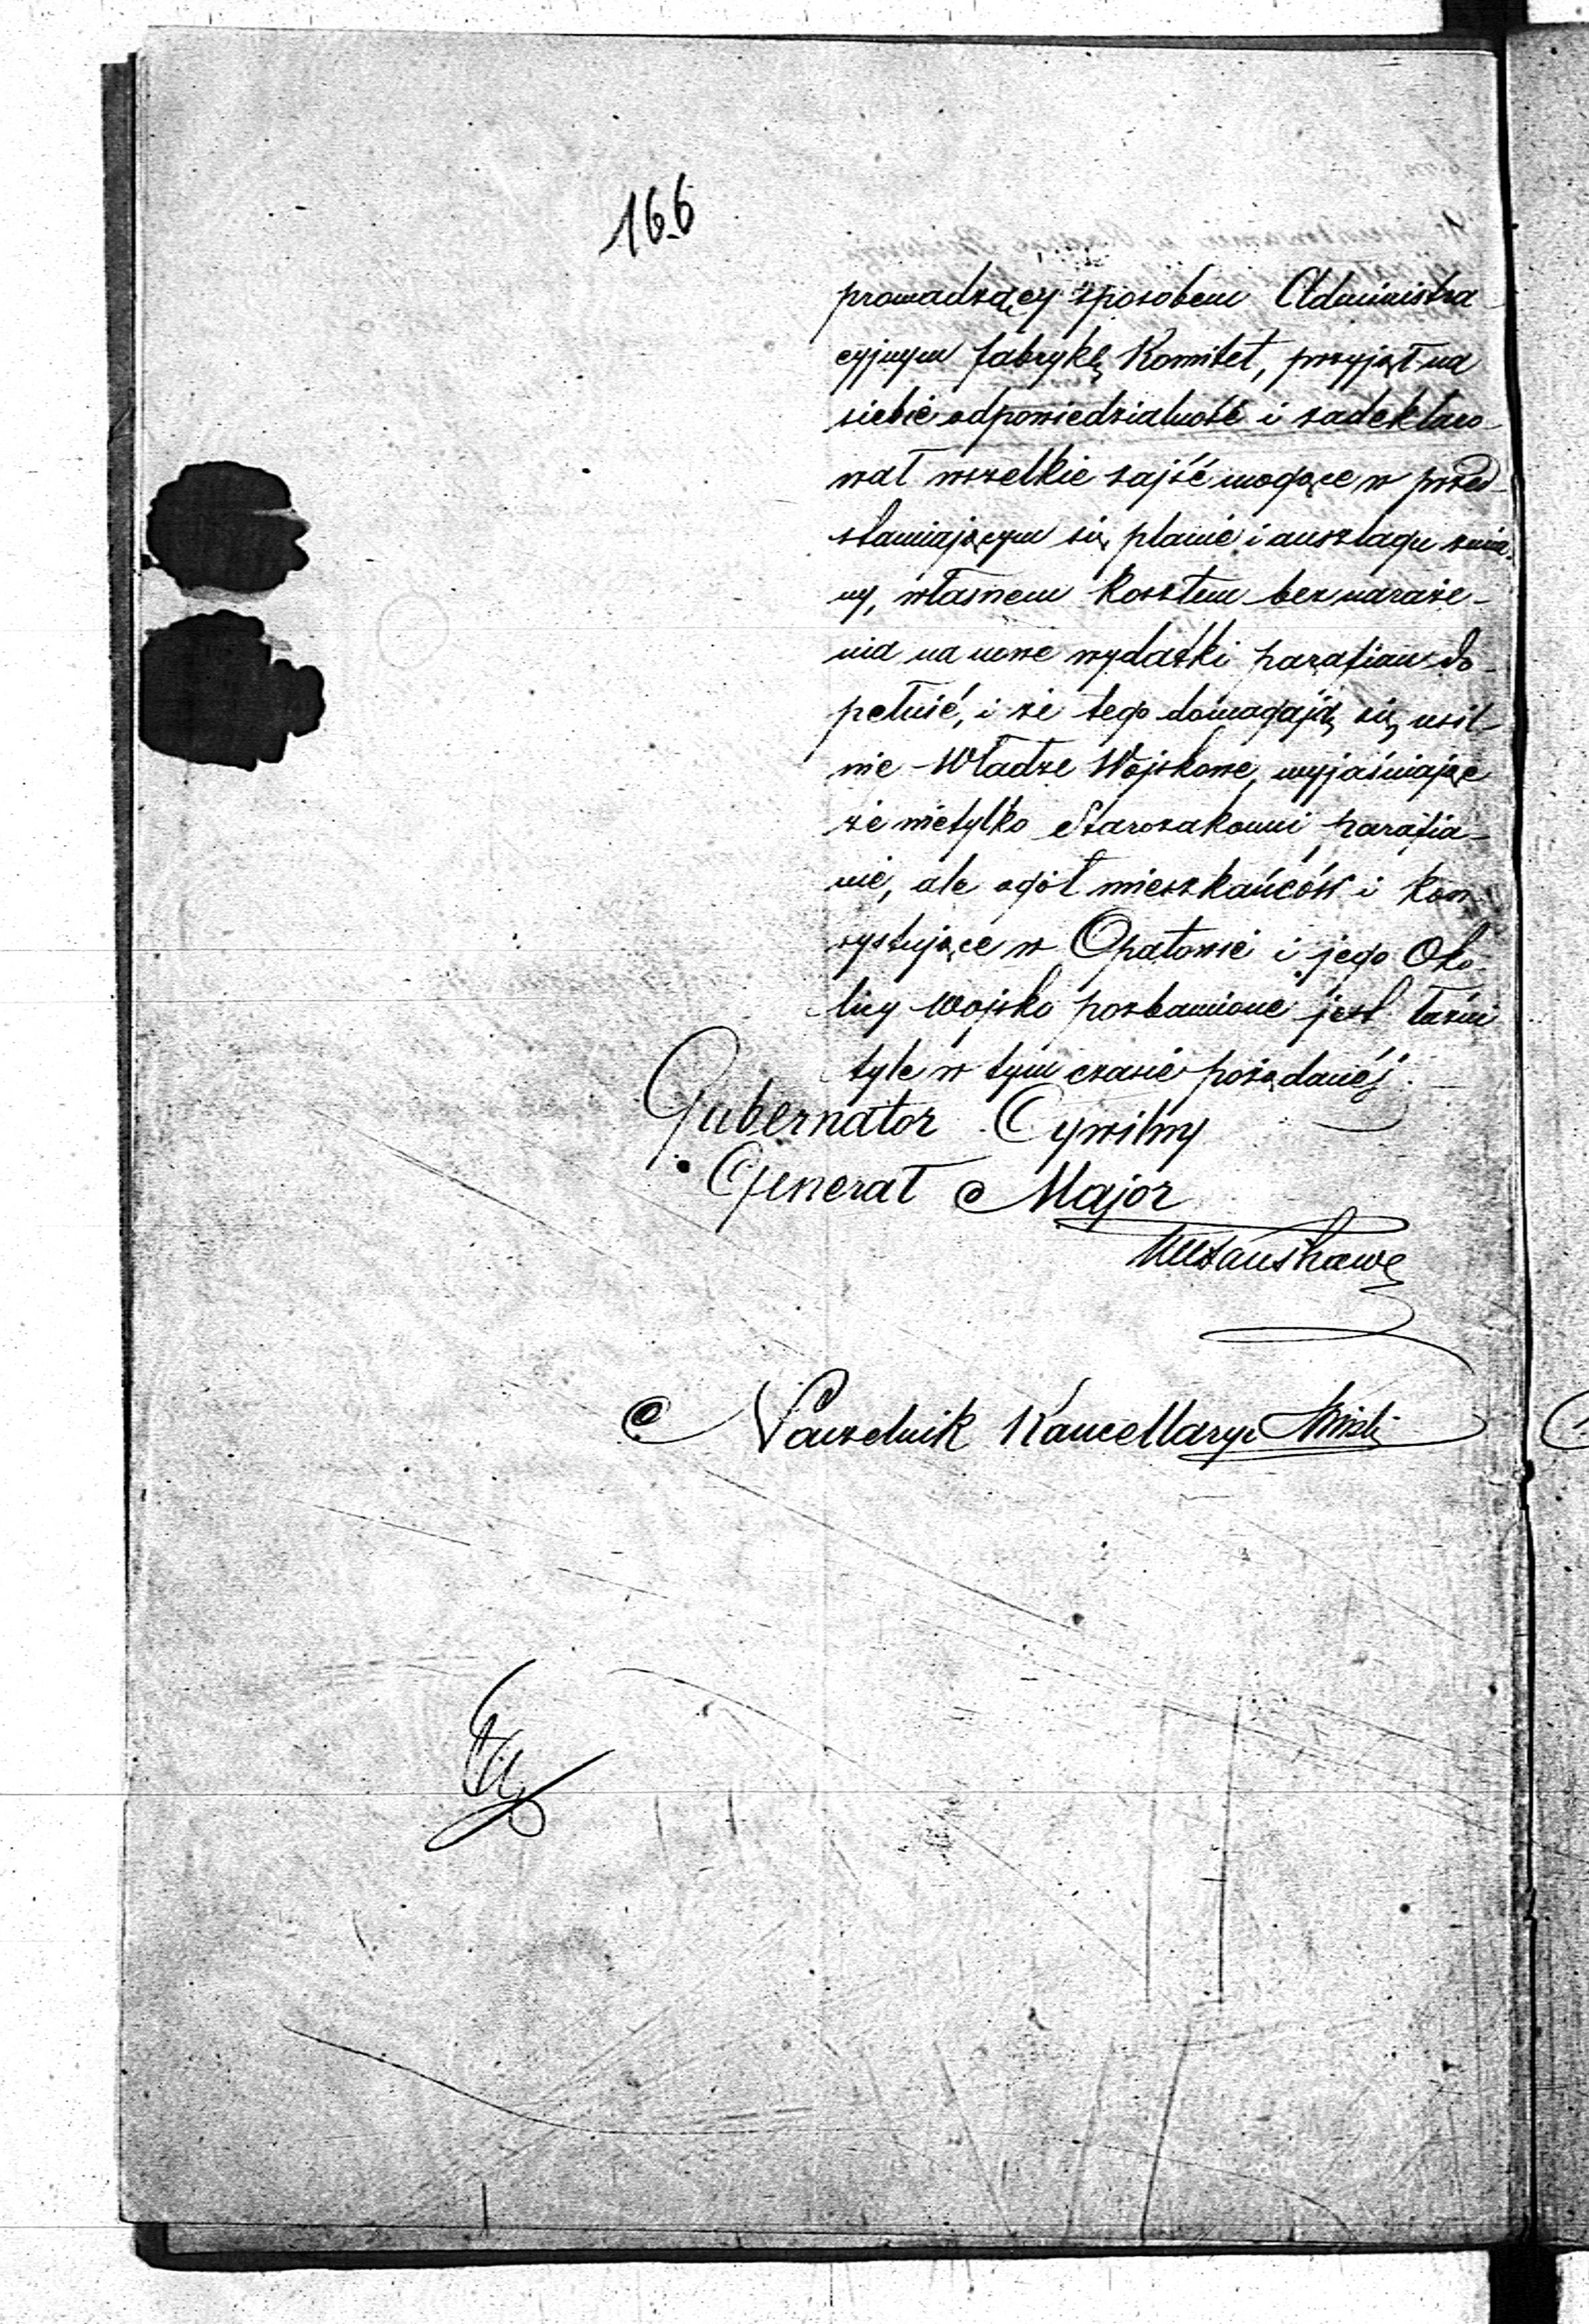 166
prowadzący sposobem Administra
cyjnym fabrykę Komitet, przyjął na
siebie odpowiedzialność i zadeklaro-
wał wszelkie zajść mogące w przed-
stawiającym się planie i anszlagu zmia
ny, własnem kosztem bez naraże-
nia na nowe wydatki parafian do
pełnić, i że tego domagają się usil-
nie Władze Wojskowe, wyjaśniając
że nietylko Starozakonni parafia-
nie, ale ogół mieszkańców i kon
systujące w Opatowie i jego Oko
licy wojsko pozbawione jest łaźni
tyle w tym czasie pożądanéj.
Gubernator Cywilny
Generał Major
Naczelnik Kancellaryi